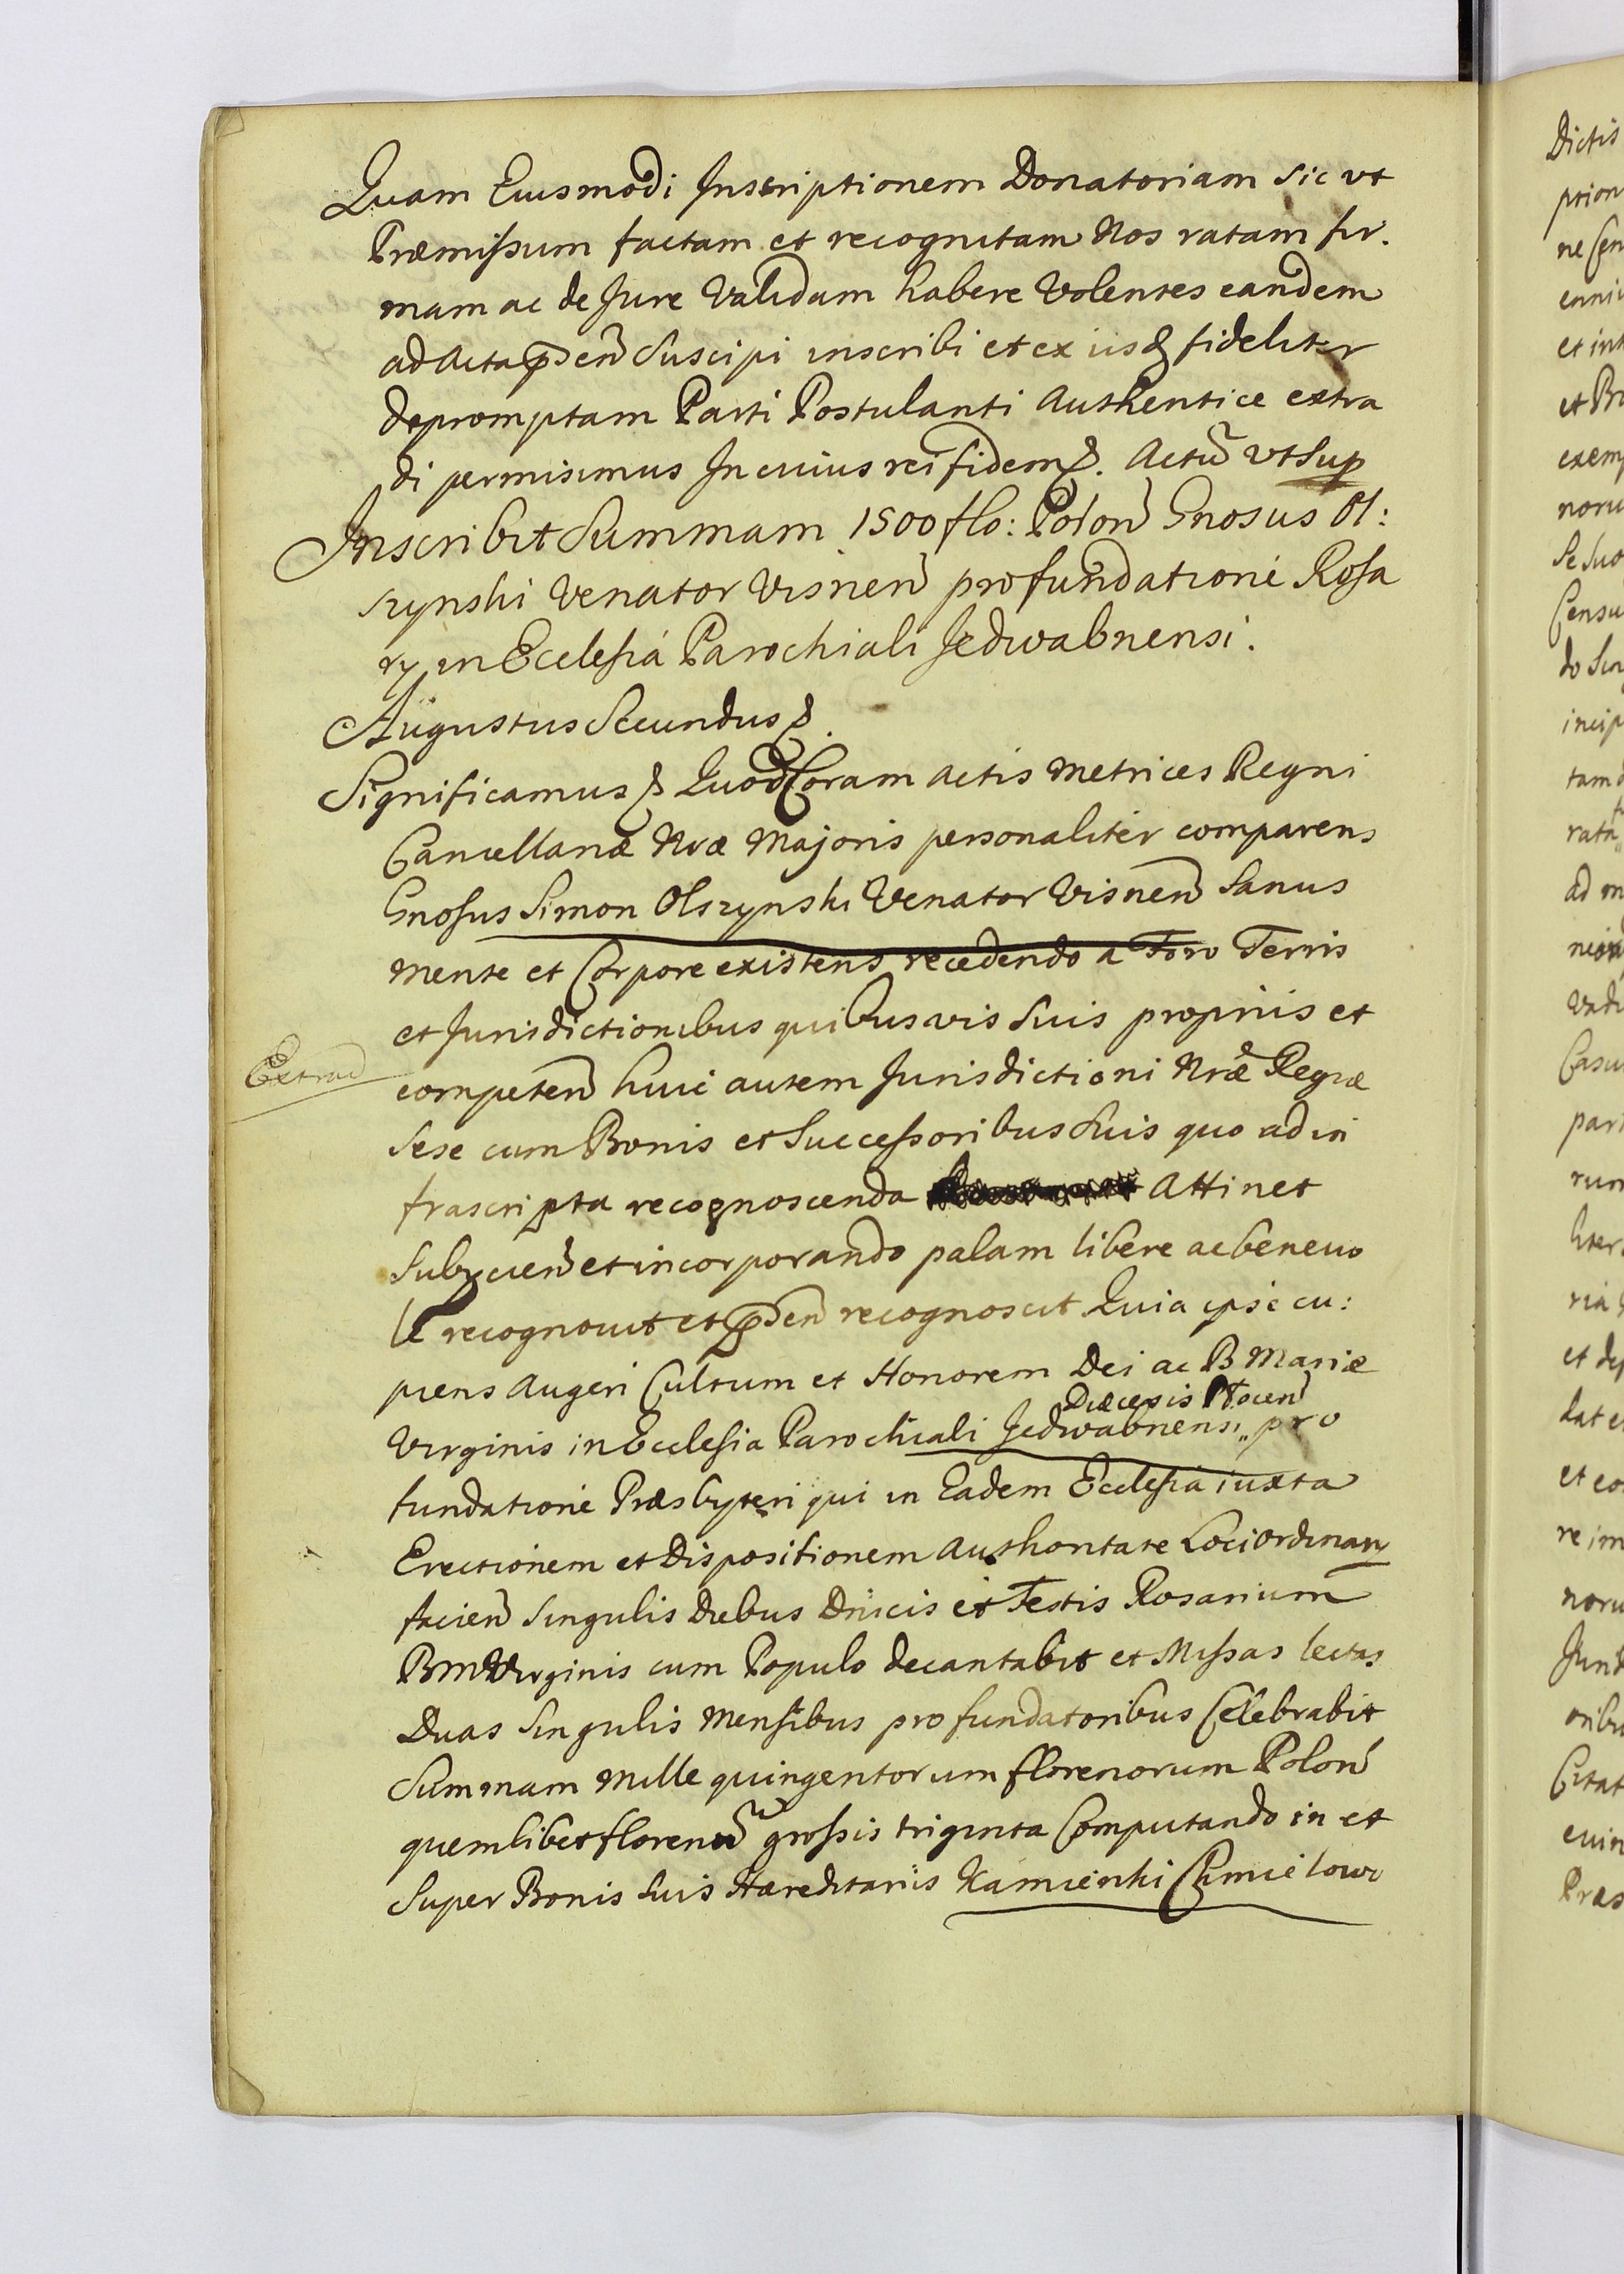 Quam Eiusmodi Inscriptionem Donatoriam sic ut
Præmissum factam et recognitam Nos ratam fir.
mam ac de Jure Validam habere Volentes eandem
ad Acta pñsen Suscipi inscribi et ex iisd fideliter
depromptam Parti Postulanti Authentice extra
di permisimus In cuius rei fidem &. Actũ vt sup
Inscribit Summam 1500 flo: Polon Gnosus Ol:
szynski Venator Visnen pro fundatione Rosa
ry in Ecclesia Parochiali Jedwabnensi.
Augustus Secundus &.
Significamus & Quod Coram Actis Metrices Regni
Cancellariæ Nræ Majoris personaliter comparens
Gnosus Simon Olszynski Venator Visnen Sanus
Mente et Corpore existens recedendo a Foro Terris
et Jurisdictionibus quibusvis Suis propriis et
Extrad
competen huic autem Jurisdictioni Nræ Regiæ
Sese cum Bonis et Successoribus Suis quo ad in
frascripta recognoscenda Attinet
Subyicien et incorporando palam libere ac benevo
le recognovit et pñsen recognoscit Quia ipse cu:
piens Augeri Cultum et Honorem Dei ac B Mariæ
Diæcesis Plocen
Virginis in Ecclesia Parochiali Jedwabnensi,, pro
fundatione Præsbyteri qui in Eadem Ecclesia iuxta
Erectionem et Dispositionem Authoritate Loci Ordinary
facien Singulis Diebus Dnicis et Festis Rosarium
BM Virginis cum Populo decantabit et Missas lectas
Duas Singulis Mensibus pro fundatoribus Celebrabit
Summam Mille quingentorum florenorum Polon
quemlibet florenũ grossis triginta Computando in et
Super Bonis Suis Hæreditariis Kamienki Chmielowo